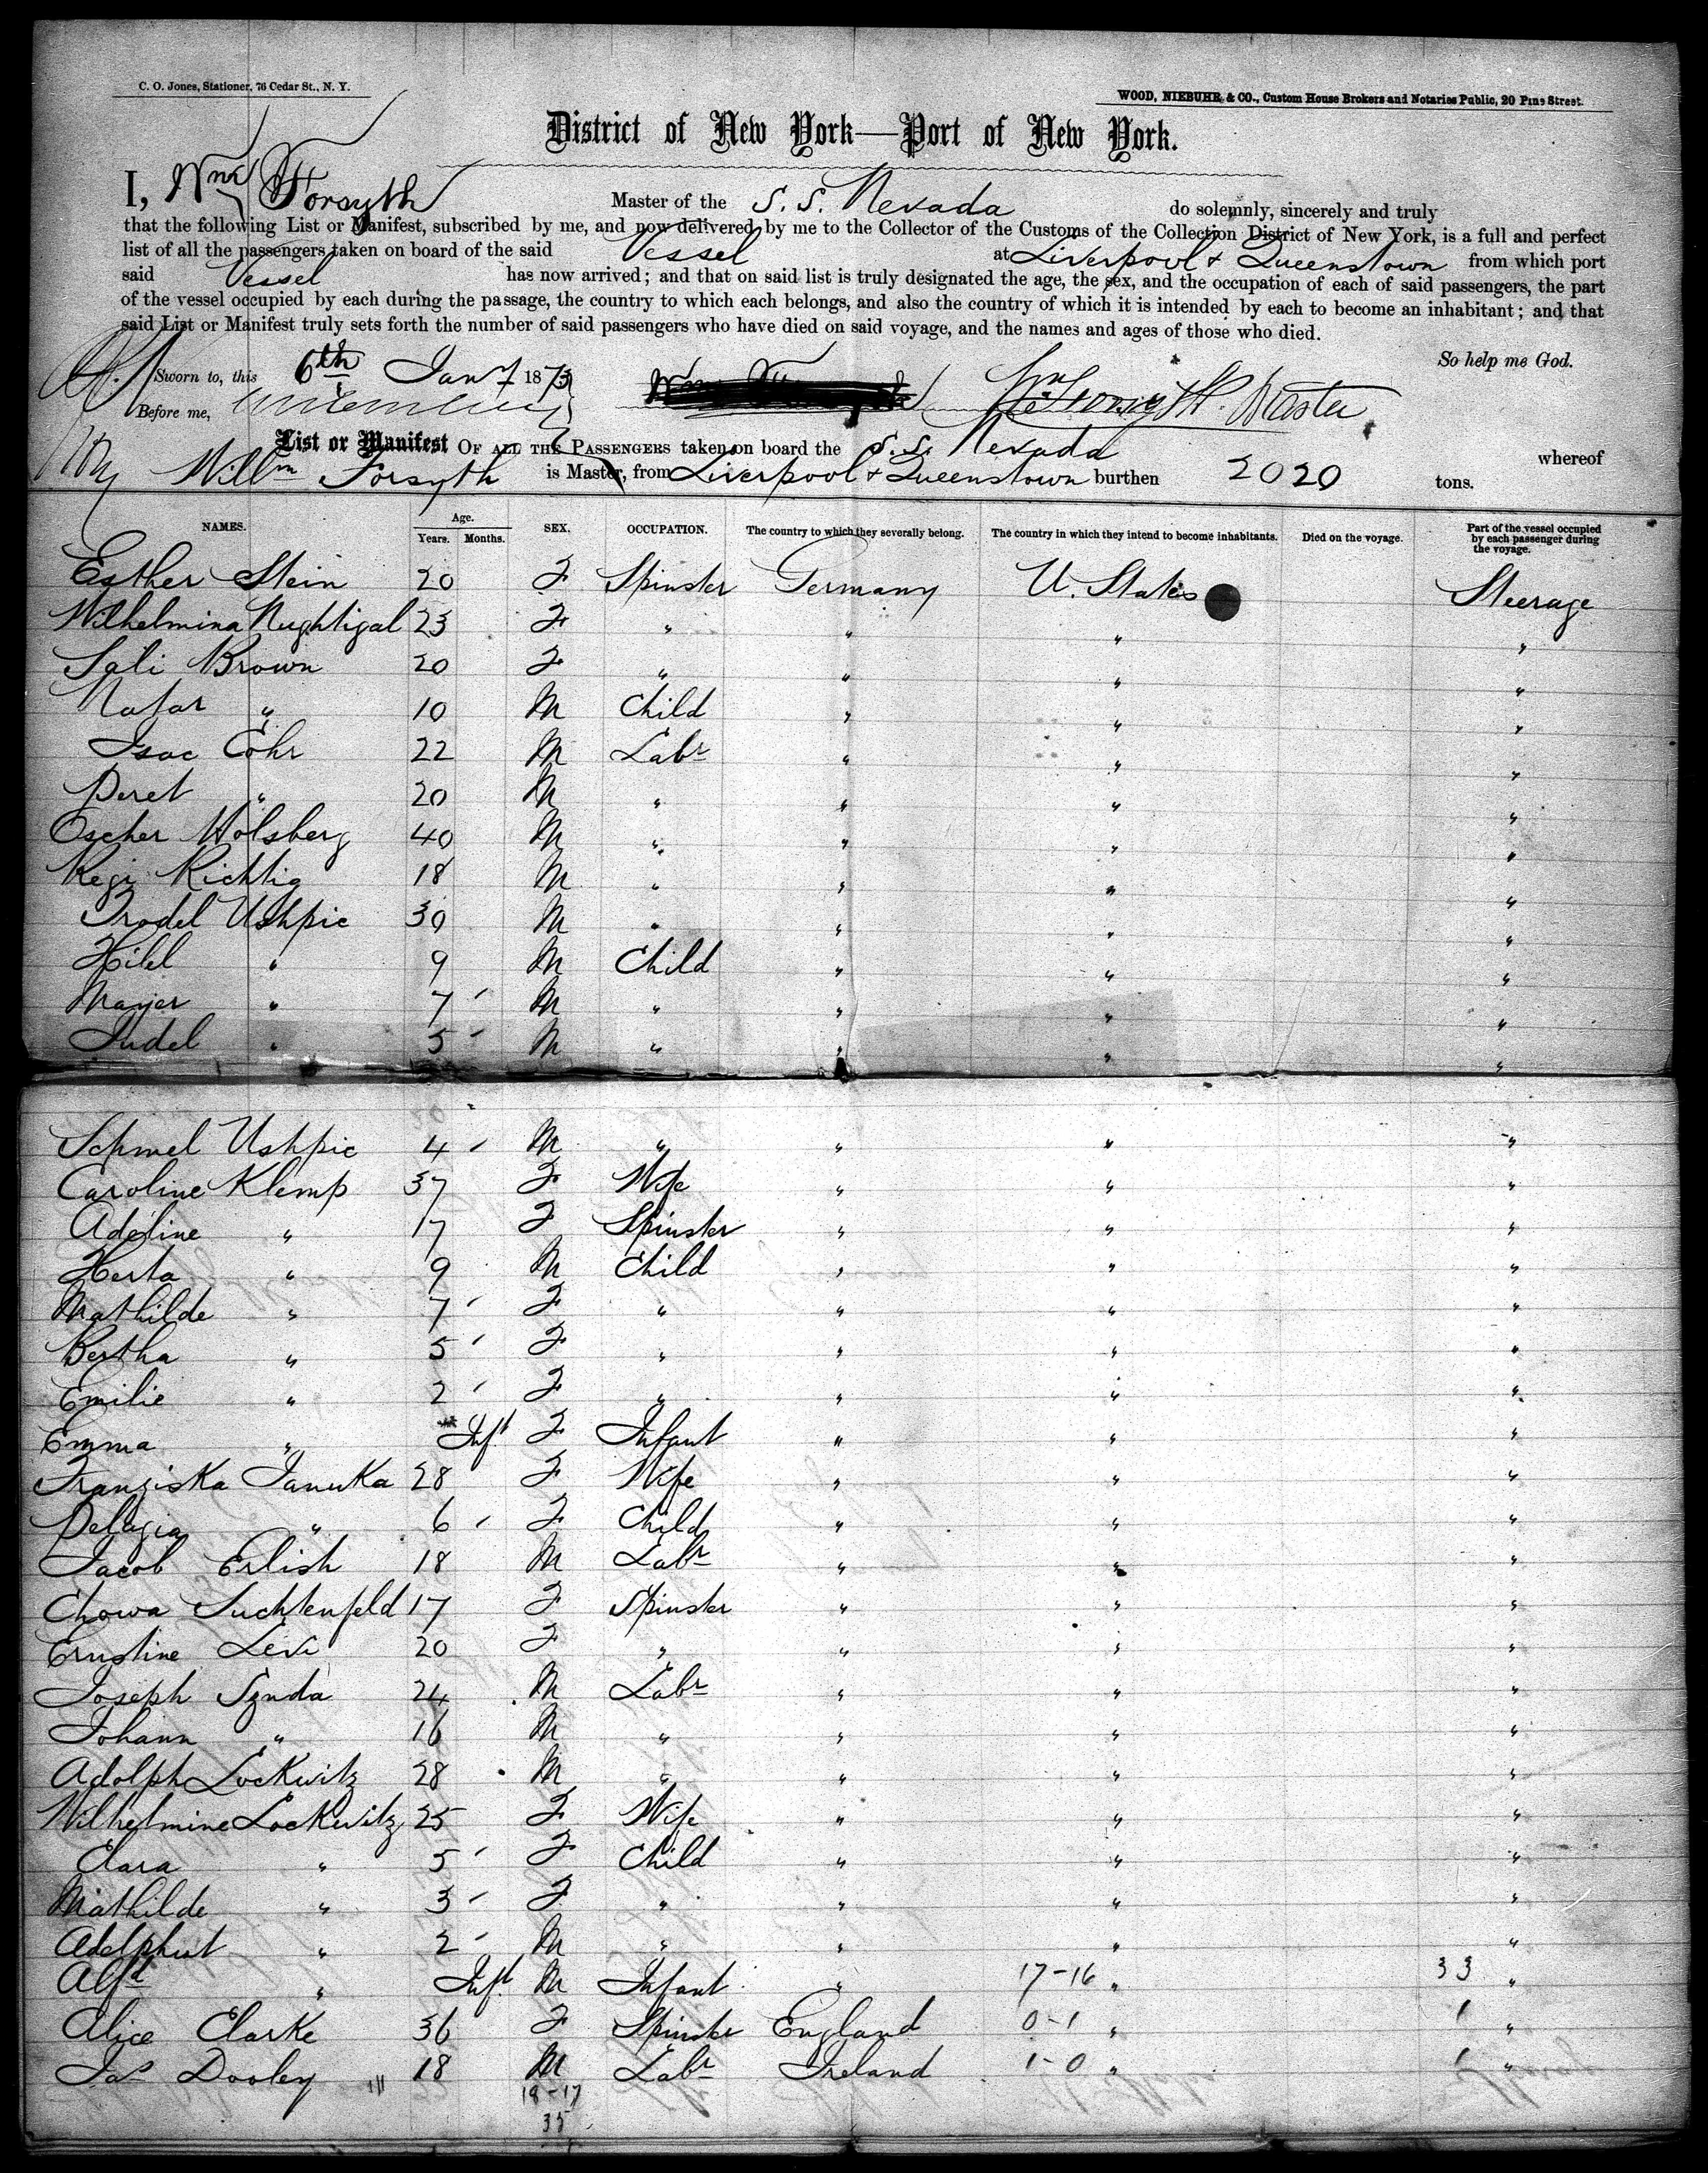 C. O. Jones, Stationer, 76 Cedar St., N. Y.
WOOD, NIEBUHR & CO., Custom House Brokers and Notaries Public, 20 Pine Street.
District of New York—Port of New York.
I, Wm Forsyth Master of the S. S. Nevada do solemnly, sincerely and truly
that the following List or Manifest, subscribed by me, and now delivered by me to the Collector of the Customs of the Collection District of New York, is a full and perfect
list of all the passengers taken on board of the said Vessel at Liverpool & Queenstown from which port
said Vessel has now arrived; and that on said list is truly designated the age, the sex, and the occupation of each of said passengers, the part
of the vessel occupied by each during the passage, the country to which each belongs, and also the country of which it is intended by each to become an inhabitant; and that
said List or Manifest truly sets forth the number of said passengers who have died on said voyage, and the names and ages of those who died.
So help me God.
Sworn to, this 6th Jany 1873
Wm Forsyth Master
Before me,
List or Manifest OF ALL THE PASSENGERS taken on board the S.S. Nevada whereof
Willm Forsyth is Master, from Liverpool & Queenstown burthen 2020 tons.
NAMES. Age. Years. Months. SEX. OCCUPATION. The country to which they severally belong. The country in which they intend to become inhabitants. Died on the voyage. Part of the vessel occupied by each passenger during the voyage.
Esther Stein 20 F Spinster Germany U. States Steerage
Wilhelmina Nughtigal 23 F " " " "
Sali Brown 20 F " " " "
Natar " 10 M Child " " "
Isac Cohr 22 M Labr " " "
Peret " 20 M " " " "
Oscher Wolsberg 40 M " " " "
Regi Richtig 18 M " " " "
Frodel Ushpic 30 M " " " "
Hilel " 9 M Child " " "
Marjer " 7 M " " " "
Judel " 5 M " " " "
Schmel Ushpic 4 M " " " "
Caroline Klemp 37 F Wife " " "
Adeline " 17 F Spinster " " "
Herta " 9 M Child " " "
Mathilde " 7 F " " " "
Bertha " 5 F " " " "
Emilie " 2 F " " " "
Emma " Inft F Infant " " "
Franziska Januka 28 F Wife " " "
Pelagia " 6 F Child " " "
Jacob Erlish 18 M Labr " " "
Chowa Suchtenfeld 17 F Spinster " " "
Ernstine Levi 20 F " " " "
Joseph Synda 24 M Labr " " "
Johann " 16 M " " " "
Adolph Lockwitz 28 M " " " "
Wilhelmine Lockwitz 25 F Wife " " "
Clara " 5 F Child " " "
Mathilde " 3 F " " " "
Adolphut " 2 M " " " "
Alfd " Inft M Infant " 17-16 " 33 "
Alice Clarke 36 F Spinster England 0-1 " 1 "
Jas Dooley 18 M Labr Ireland 1-0 " 1 "
18-17
35